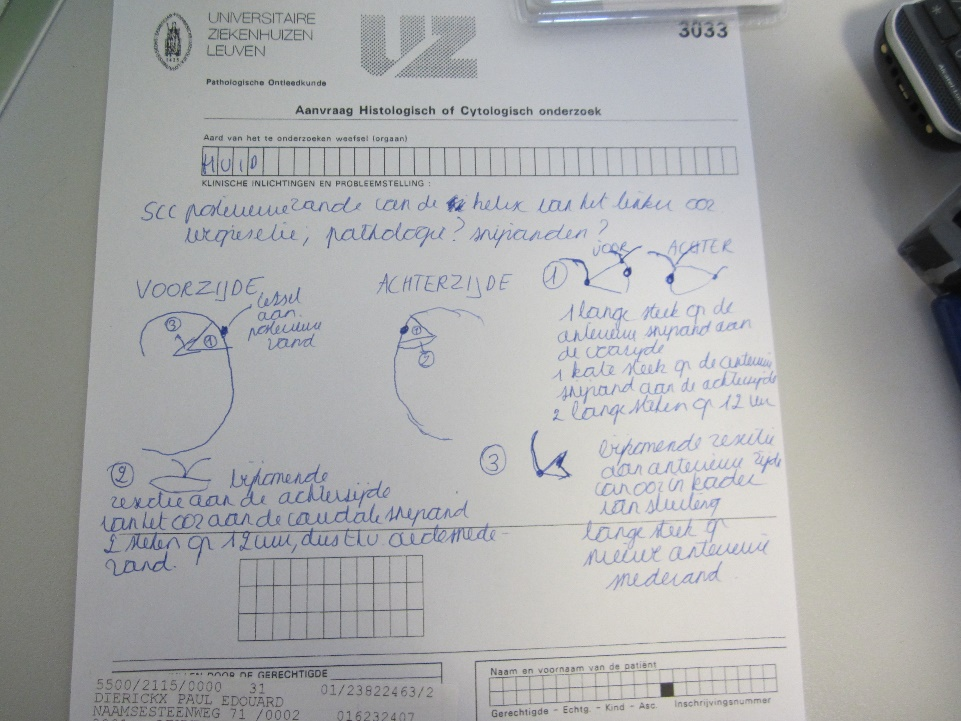 UNIVERSITAIRE
ZIEKENHUIZEN
LEUVEN
UZ
3033
Pathologische Ontleedkunde
Aanvraag Histologisch of Cytologisch onderzoek
Aard van het te onderzoeken weefsel (orgaan)
HUID
KLINISCHE INLICHTINGEN EN PROBLEEMSTELLING :
SCC van de helix van het linker oor
pathologie? snijranden?
VOORZIJDE
letsel
aan
rand
3
1
ACHTERZIJDE
1
2
1
VOOR
ACHTER
1 lange steek op de
anterieure snijrand aan
de voorzijde
1 korte steek op de anterieure
snijrand aan de achterzijde
2 lange steken op 12 uur
2 bijkomende
resectie aan de achterzijde
van het oor aan de caudale snijrand
2 steken op 12 uur, dus t.h.v.
rand.
3
bijkomende resectie
aan anterieure zijde
van oor in kader
van sluiting
lange steek op
nieuwe anterieure
snederand
DOOR DE GERECHTIGDE
5500/2115/0000 31 01/23822463/2
DIERICKX PAUL EDOUARD
NAAMSESTEENWEG 71 /0002 016232407
Naam en voornaam van de patiënt
Gerechtigde - Echtg. - Kind - Asc. Inschrijvingsnummer